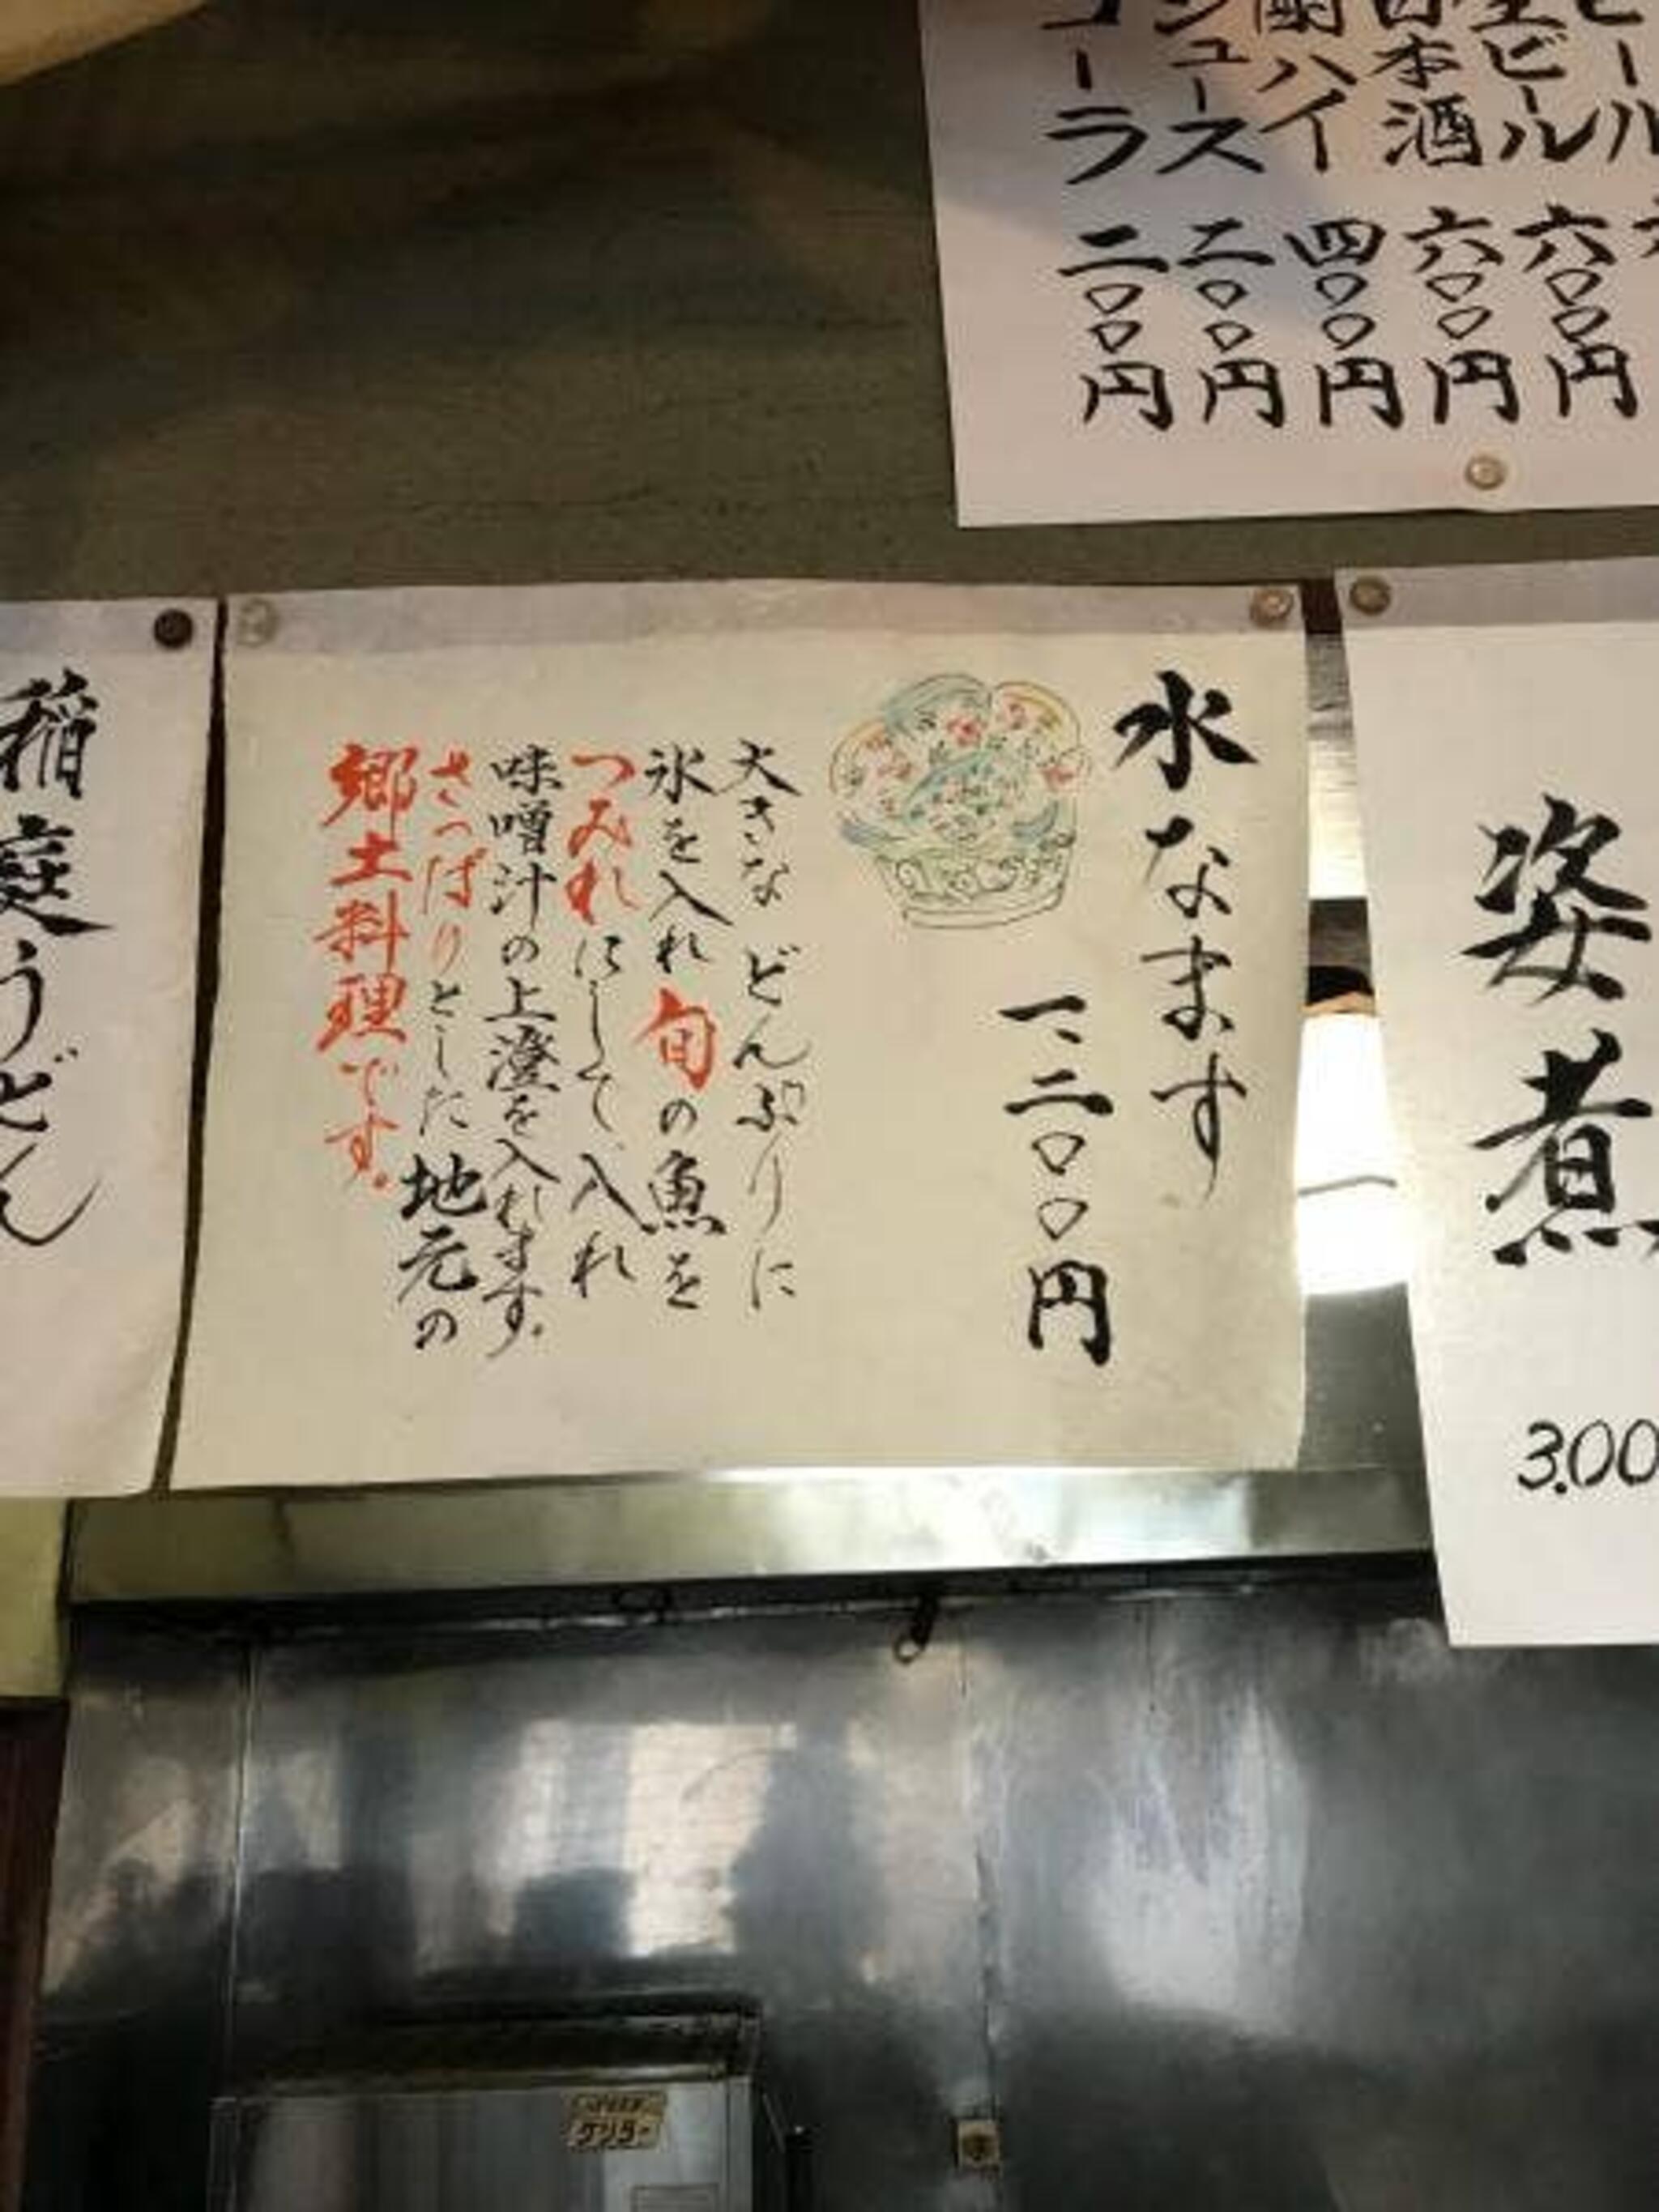 ビール
生ビール 六〇〇円
日本酒 六〇〇円
酎ハイ 四〇〇円
ジュース 二〇〇円
コーラ 二〇〇円
姿煮
3.00
水なます
一、二〇〇円
大きなどんぶりに
氷を入れ旬の魚を
つみれにして、入れ
味噌汁の上澄を入れます。
さっぱりとした地元の
郷土料理です。
稲庭うどん